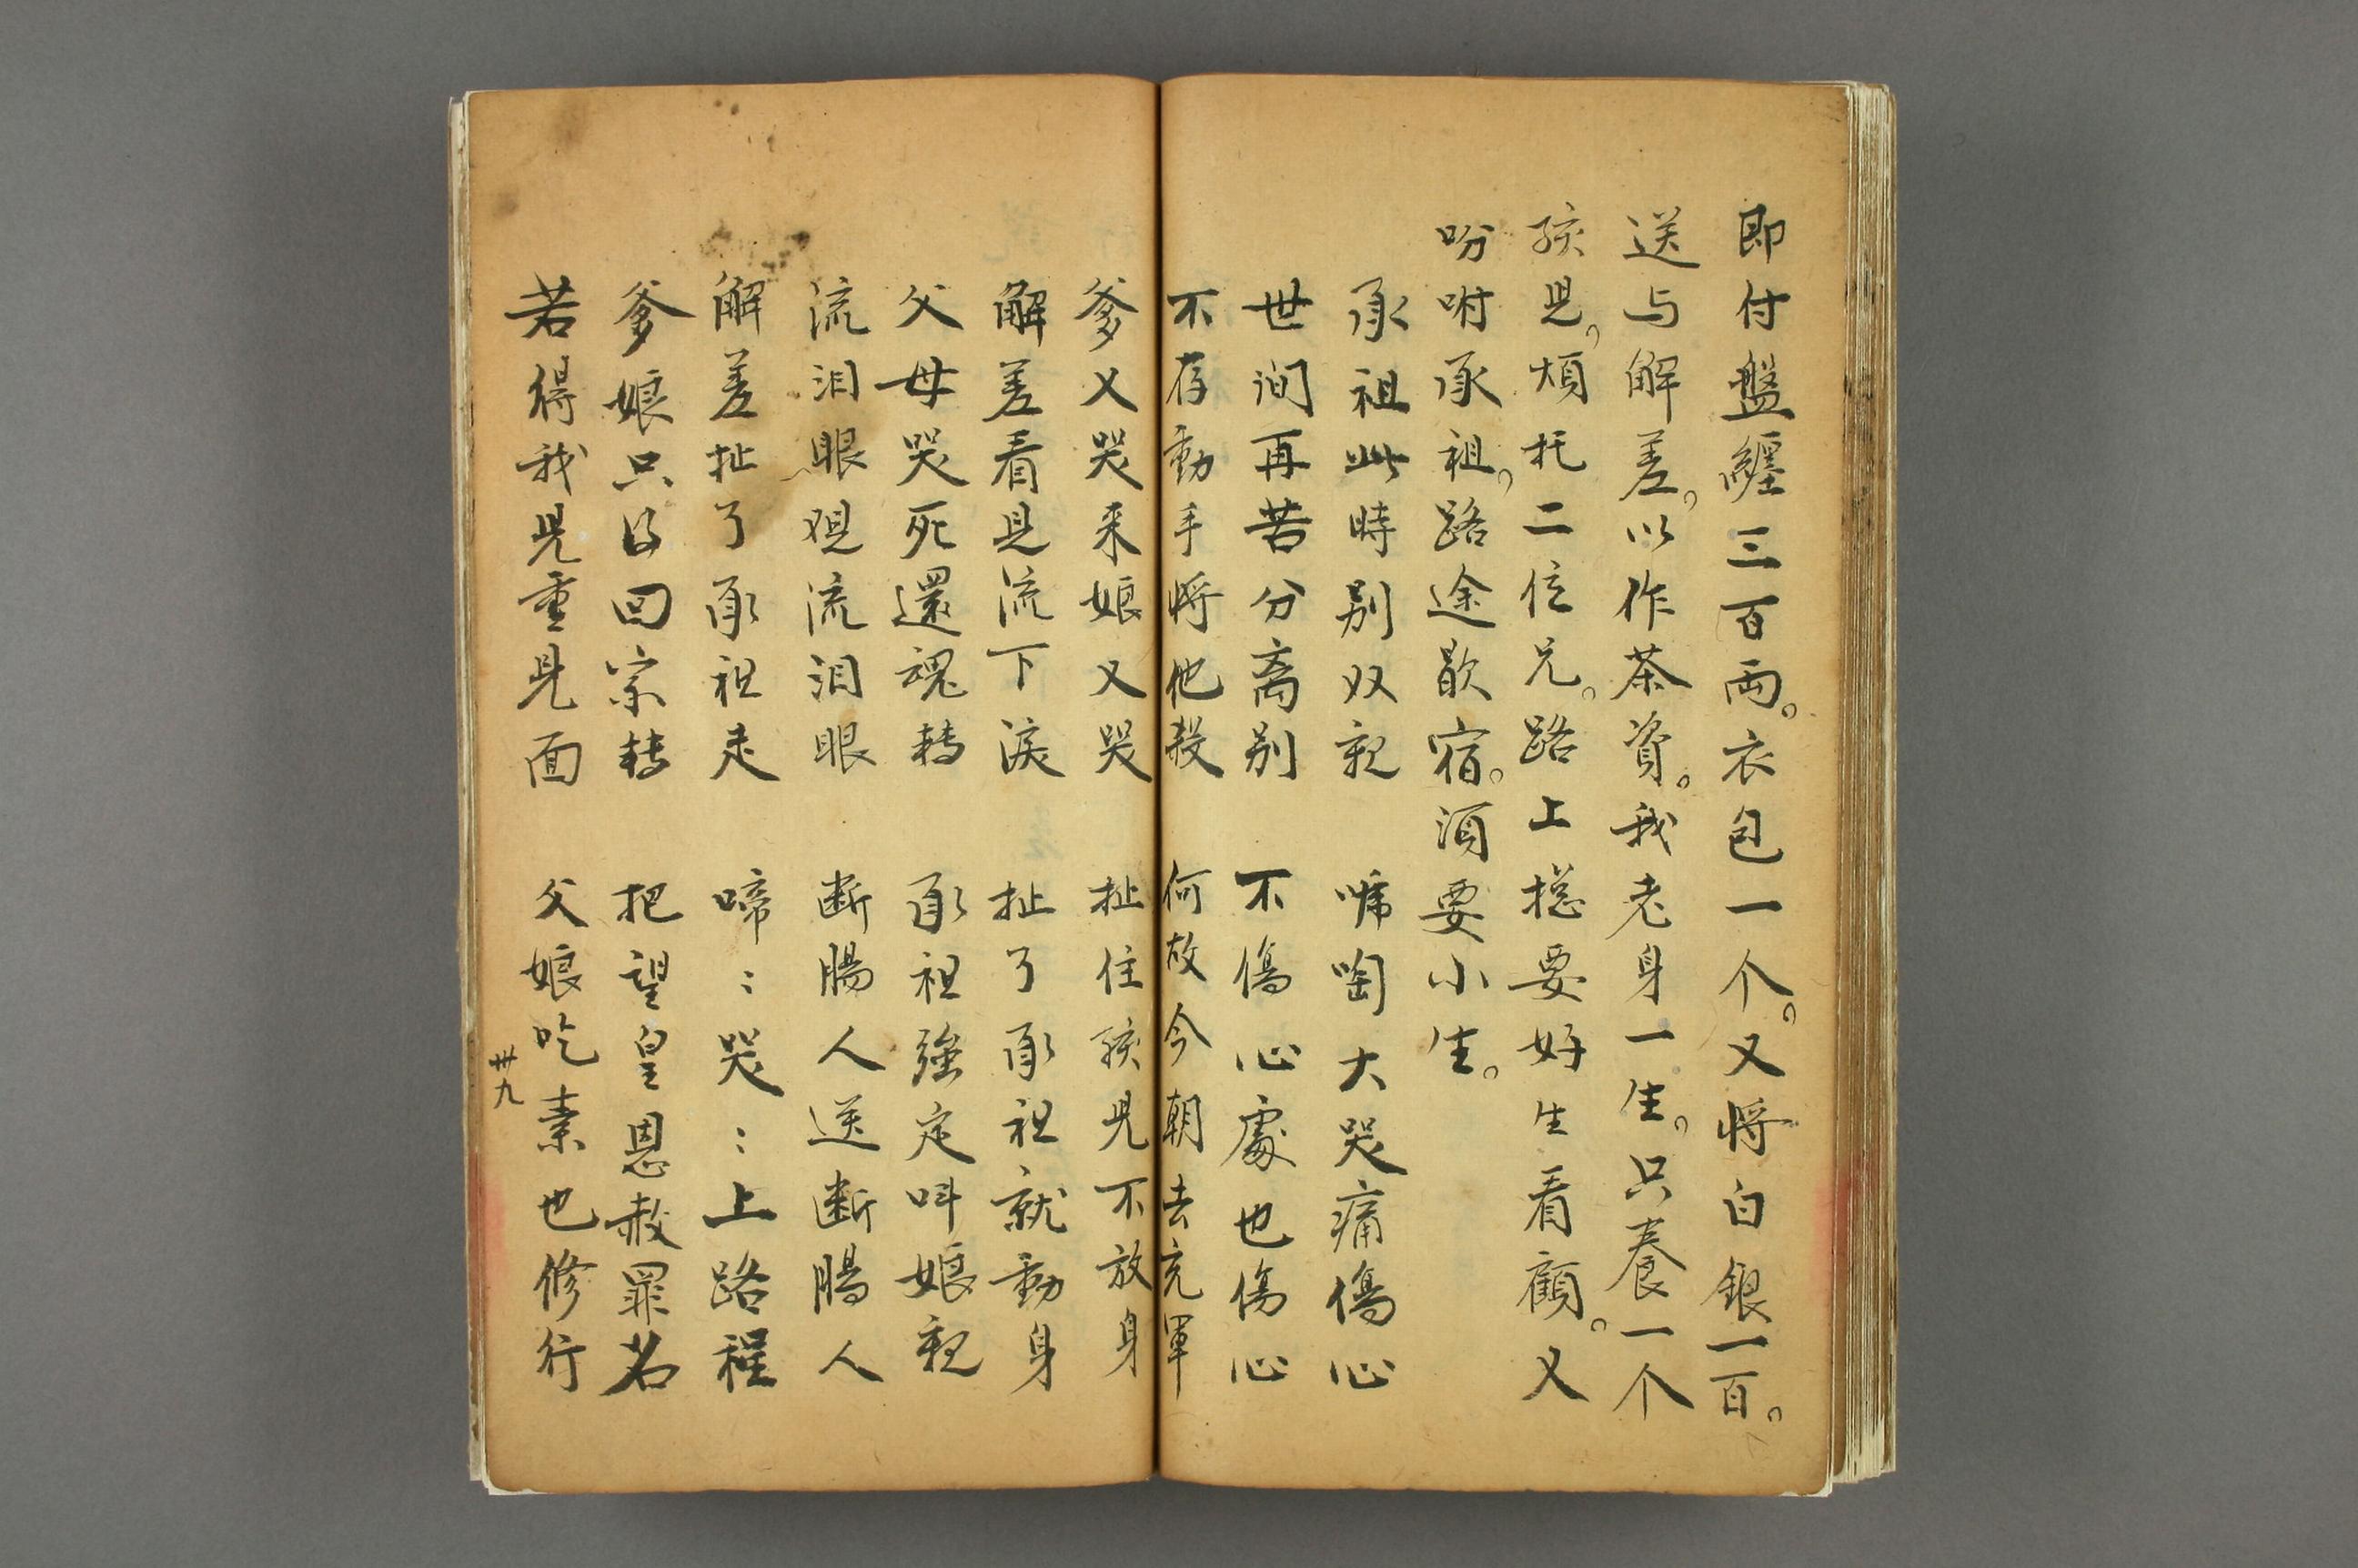 即付盤纏三百両。衣包一个。又将白銀一百。
送与解差。以作茶資。我老身一生。只養一个
孩児。煩托二位兄。路上揔要好生看顧。又
吩咐承祖。路途歇宿。須要小生。
承祖此時别双親　啼啕大哭痛傷心
世间再若分离别　不傷心處也傷心
不存動手将他殺　何故今朝去充軍
爹又哭来娘又哭　扯住孩児不放身
解差看見流下淚　扯了承祖就動身
父母哭死還魂轉　承祖強定呌娘親
流泪眼观流泪眼　断腸人送断腸人
解差扯了承祖走　啼〻哭〻上路程
爹娘只得回家轉　把望皇恩赦罪名
若得我児重見面　父娘吃素也修行
卅九